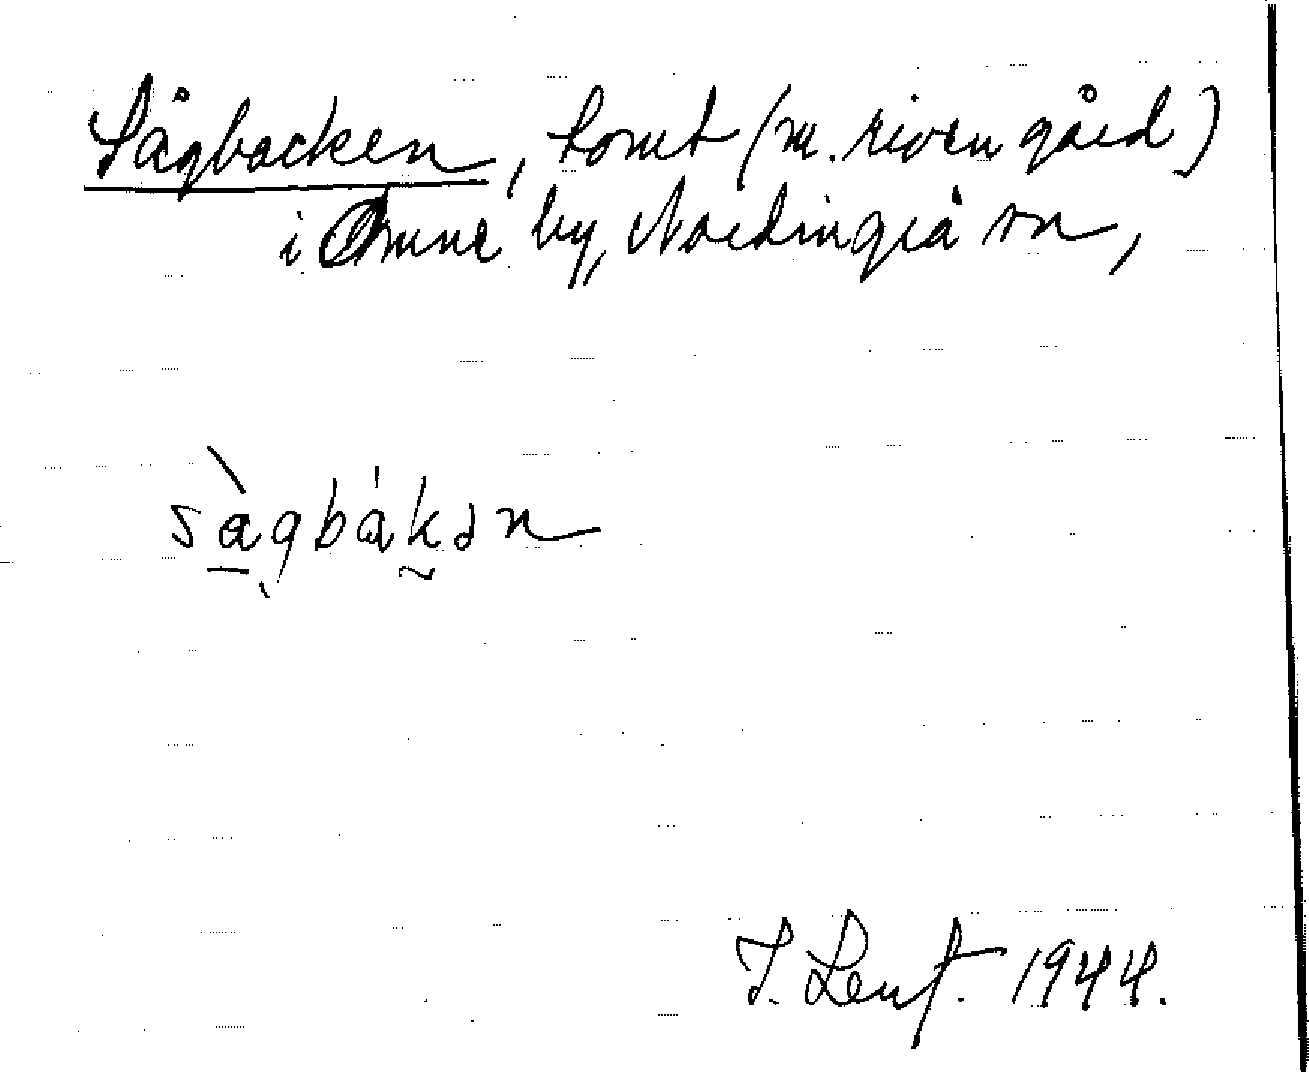 Sågbacken, tomt (m. riven gård)
i Omne by, Nordingrå sn,
sàgbákən
T. Lenf. 1944.